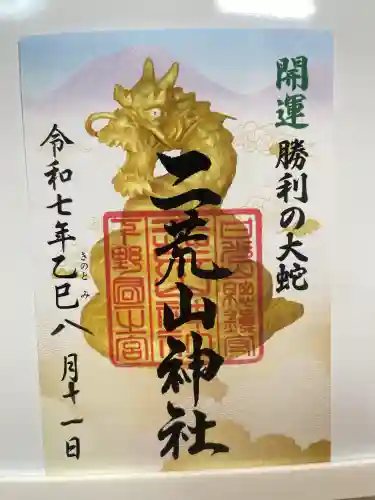 開運 勝利の大蛇
二荒山神社
下野國一宮
令和七年乙巳八月十一日
きのとみ